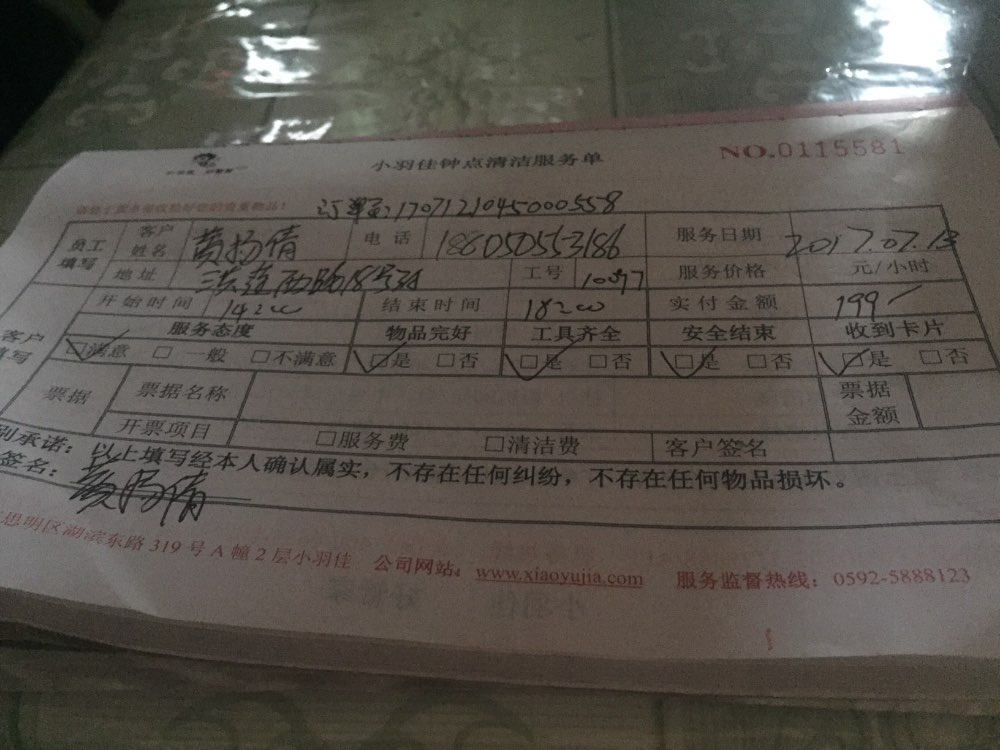 小羽佳钟点清洁服务单
NO.0115581
订单号:1707121045000558
员工填写 客户姓名 黄扬倩 电话 186050553186 服务日期 2017.07.13
地址 工号 10097 服务价格 元/小时
客户填写 开始时间 1400 结束时间 1800 实付金额 199
服务态度 物品完好 工具齐全 安全结束 收到卡片
☑满意 □一般 □不满意 ☑是 □否 ☑是 □否 ☑是 □否 ☑是 □否
票据 票据名称 票据金额
开票项目 □服务费 □清洁费 客户签名
别承诺：以上填写经本人确认属实，不存在任何纠纷，不存在任何物品损坏。
签名：黄扬倩
思明区湖滨东路 319 号 A 幢 2 层小羽佳 公司网站：www.xiaoyujia.com 服务监督热线：0592-5888123